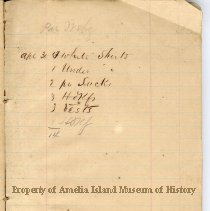 apr 30 4 white Shirts
1 Under "
2 pr Socks
3 Hdkfs
3 Vests
1
14
Property of Amelia Island Museum of History